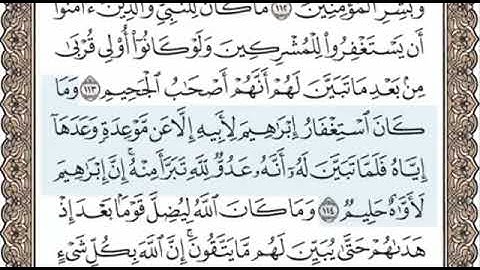 وَبَشِّرِ الْمُؤْمِنِينَ ١١٢ مَا كَانَ لِلنَّبِيِّ وَالَّذِينَ ءَامَنُوا
أَن يَسْتَغْفِرُوا لِلْمُشْرِكِينَ وَلَوْ كَانُوا أُولِي قُرْبَىٰ
مِنْ بَعْدِ مَا تَبَيَّنَ لَهُمْ أَنَّهُمْ أَصْحَابُ الْجَحِيمِ ١١٣ وَمَا
كَانَ اسْتِغْفَارُ إِبْرَاهِيمَ لِأَبِيهِ إِلَّا عَن مَّوْعِدَةٍ وَعَدَهَا
إِيَّاهُ فَلَمَّا تَبَيَّنَ لَهُ أَنَّهُ عَدُوٌّ لِلَّهِ تَبَرَّأَ مِنْهُ ۚ إِنَّ إِبْرَاهِيمَ
لَأَوَّاهٌ حَلِيمٌ ١١٤ وَمَا كَانَ اللَّهُ لِيُضِلَّ قَوْمًا بَعْدَ إِذْ
هَدَاهُمْ حَتَّىٰ يُبَيِّنَ لَهُم مَّا يَتَّقُونَ ۚ إِنَّ اللَّهَ بِكُلِّ شَيْءٍ